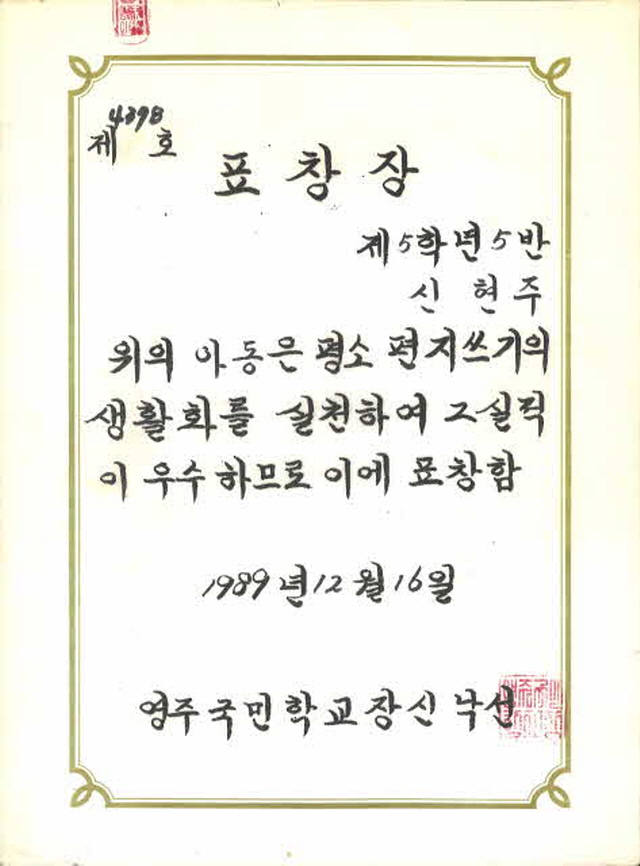 제 4398 호
표창장
제5학년5반
신 현 주
위의 아동은 평소 편지쓰기의
생활화를 실천하여 그실적
이 우수하므로 이에 표창함
1989년12월16일
영주국민학교장신낙선